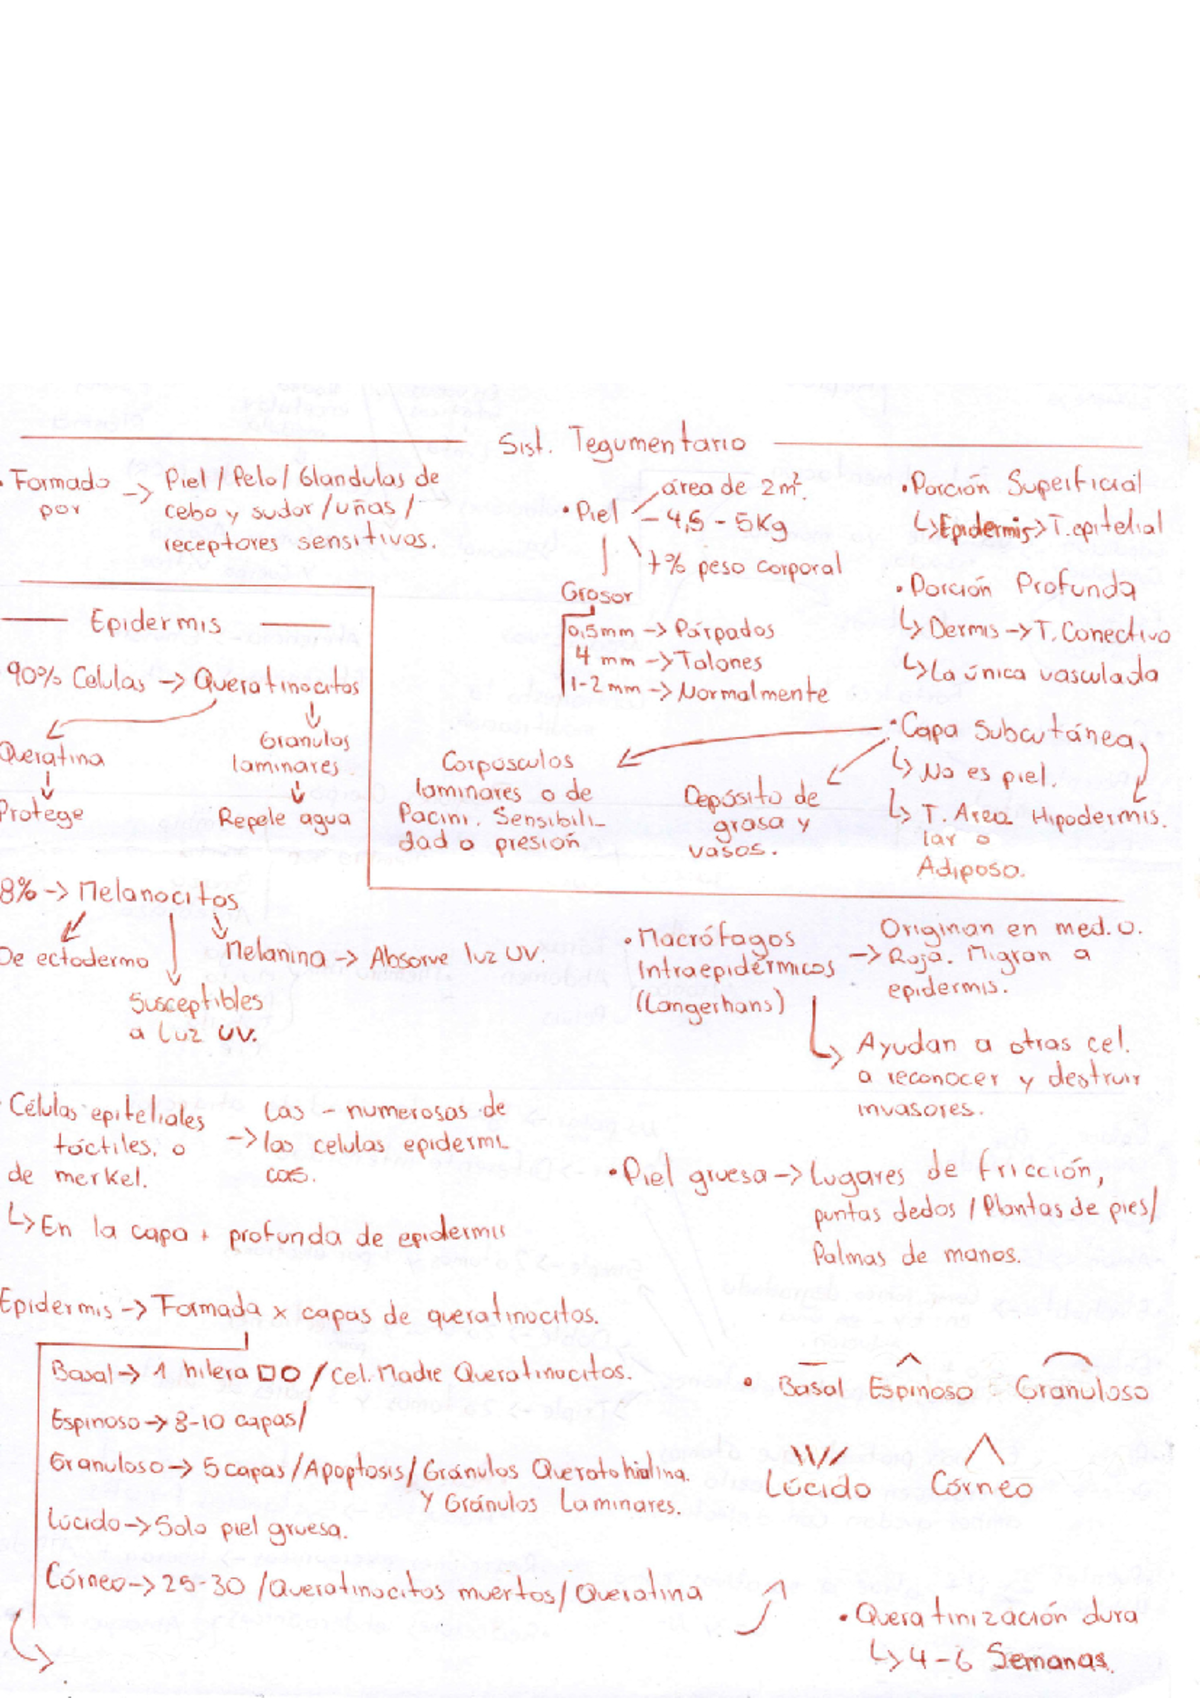 Sist. Tegumentario
• Formado -> Piel / Pelo / Glandulas de
por cebo y sudor / uñas /
receptores sensitivos.
• Piel
área de 2 m².
4,5 - 5 Kg
7% peso corporal
Grosor
0,5mm -> Párpados
4 mm -> Talones
1-2 mm -> Normalmente
• Porción Superficial
↳ Epidermis -> T. epitelial
• Porción Profunda
↳ Dermis -> T. Conectivo
↳ La única vasculada
• Capa Subcutánea
↳ No es piel.
↳ T. Areo Hipodermis.
lar o
Adiposo.
Corpúsculos
laminares o de
Pacini. Sensibili-
dad a presión
Depósito de
grasa y
vasos.
Epidermis
90% Células -> Queratinocitos
Queratina
Protege
Granulos
laminares.
Repele agua
8% -> Melanocitos
De ectodermo
Susceptibles
a luz UV.
Melanina -> Absorve luz UV.
• Macrófagos
Intraepidérmicos
(Langerhans)
-> Originan en med. O.
Roja. Migran a
epidermis.
↳ Ayudan a otras cel.
a reconocer y destruir
invasores.
• Células epiteliales
táctiles, o
de merkel.
-> Las - numerosas de
las celulas epidermi
cas.
↳ En la capa + profunda de epidermis
• Piel gruesa -> Lugares de fricción,
puntas dedos / Plantas de pies/
Palmas de manos.
Epidermis -> Formada x capas de queratinocitos.
Basal -> 1 hilera □ O / Cel. Madre Queratinocitos.
Espinoso -> 8-10 capas/
Granuloso -> 5 capas / Apoptosis / Gránulos Queratohialina.
Y Gránulos Laminares.
Lúcido -> Solo piel gruesa.
Córneo -> 25-30 / Queratinocitos muertos / Queratina
• Basal Espinoso Granuloso
Lúcido Córneo
• Queratinización dura
↳ 4-6 Semanas.